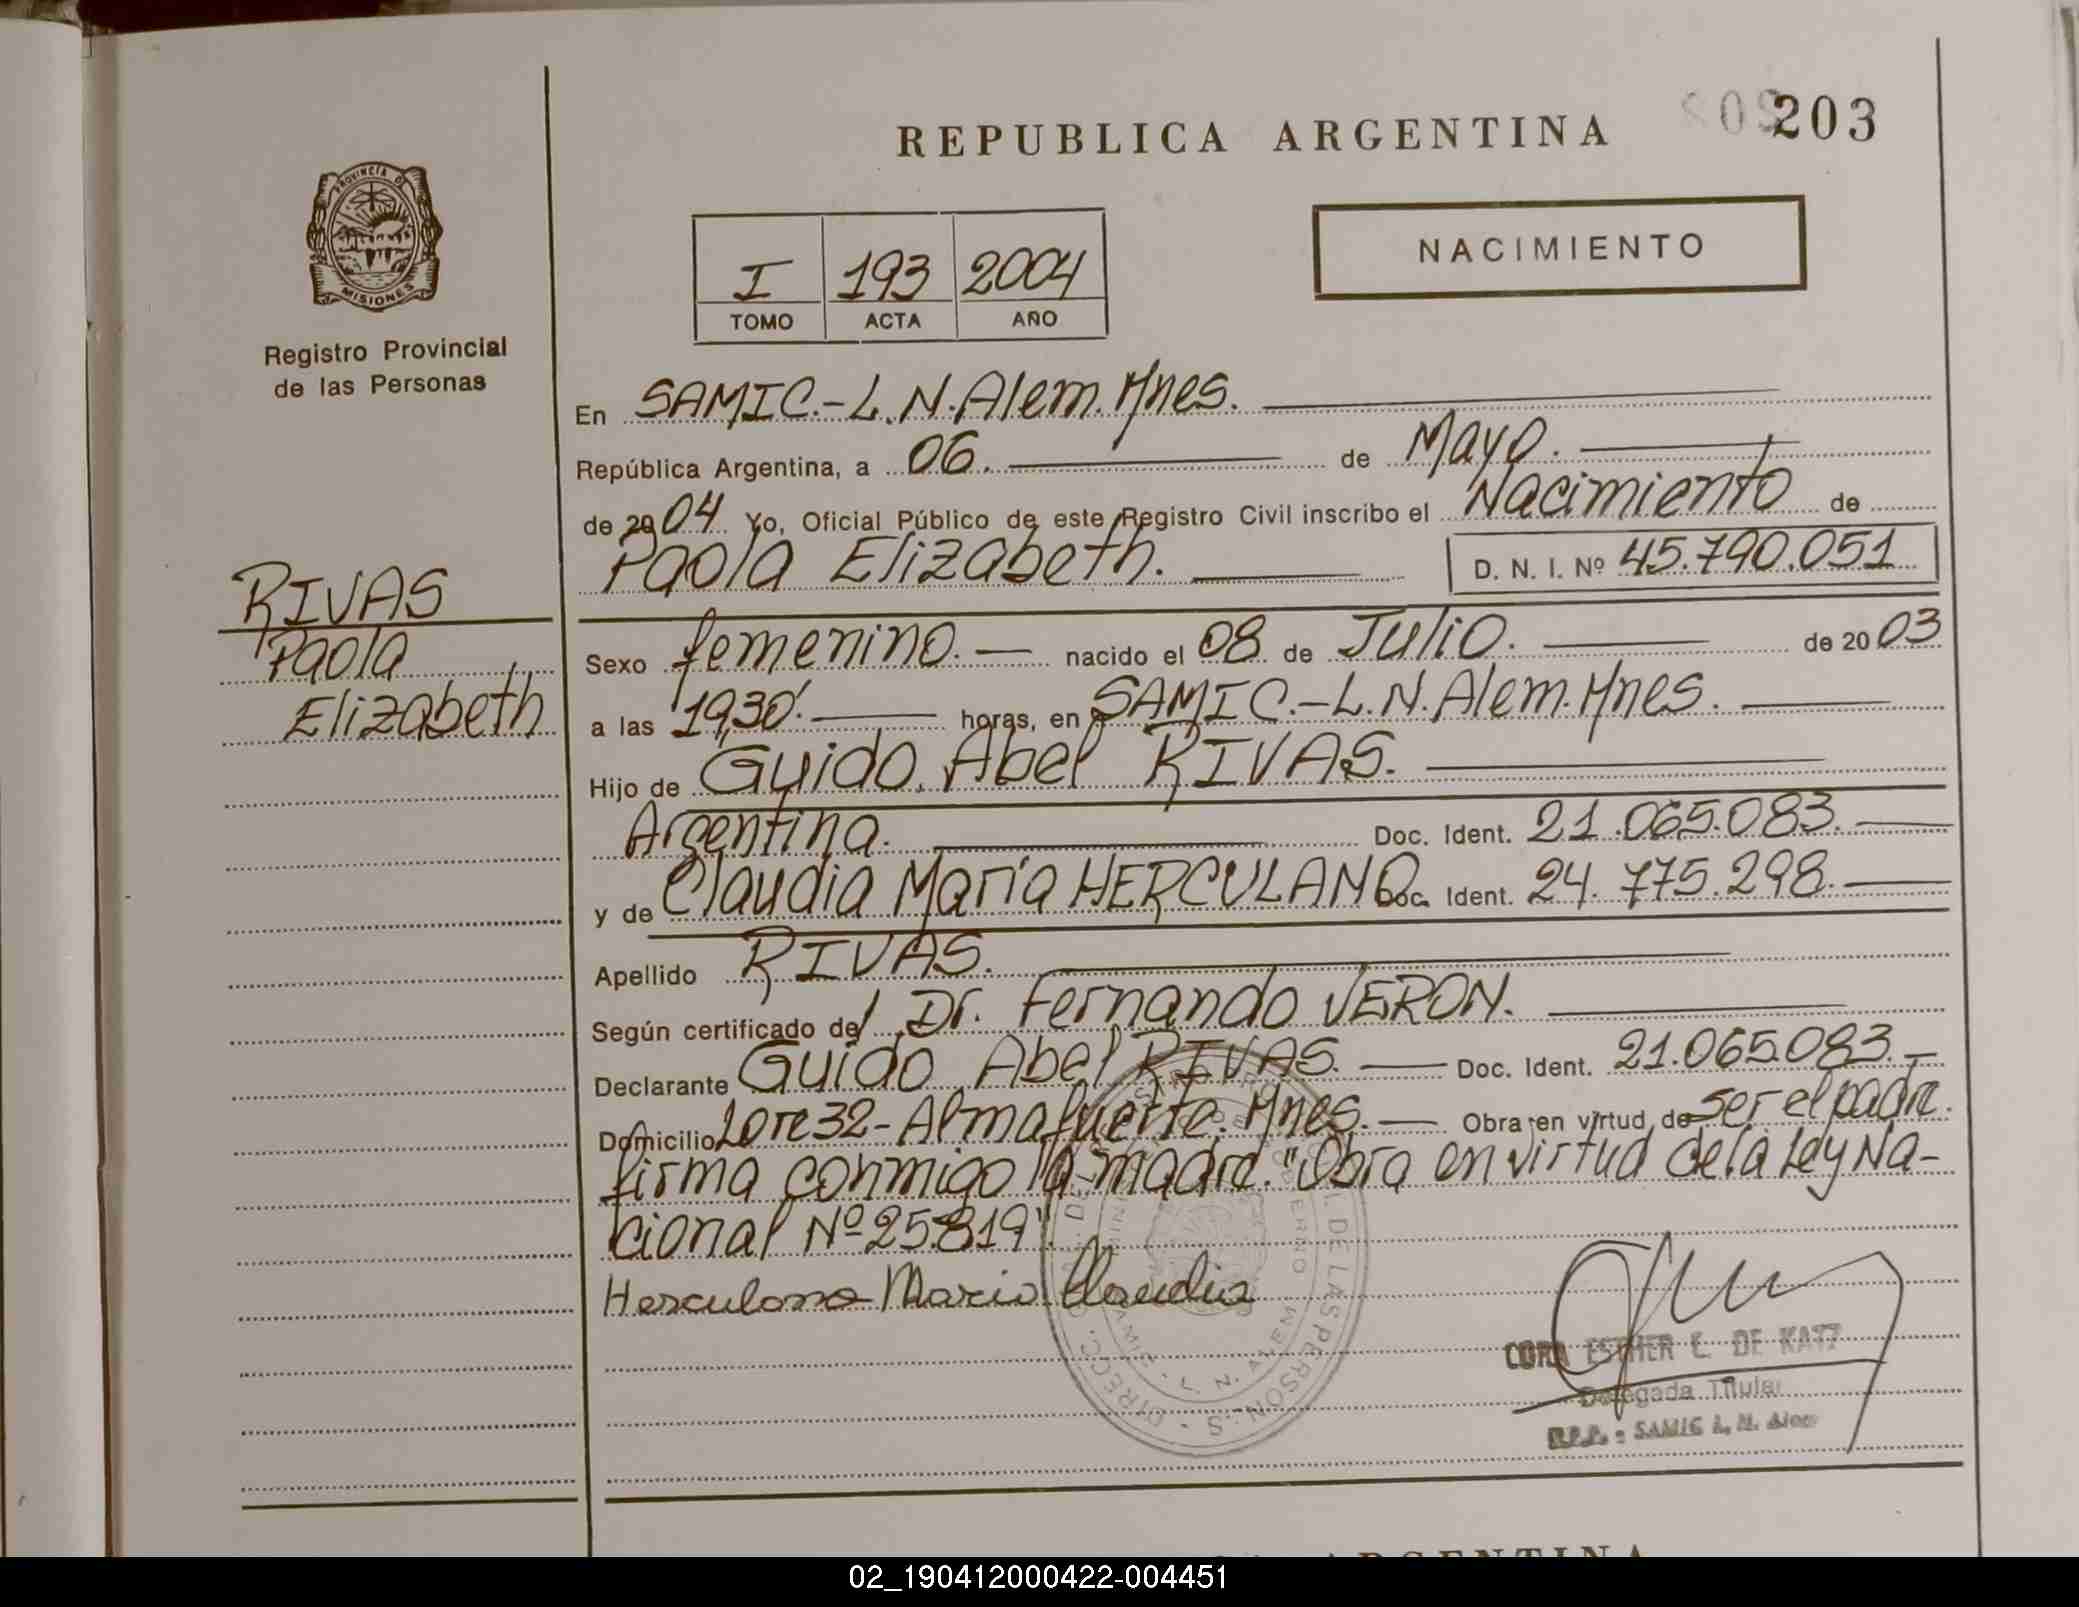 REPUBLICA ARGENTINA 203
PROVINCIA DE
MISIONES
Registro Provincial
de las Personas
I 193 2004
TOMO ACTA AÑO
NACIMIENTO
En SAMIC.-L.N.Alem.Mnes.
República Argentina, a 06. de Mayo.
de 2004 Yo, Oficial Público de este Registro Civil inscribo el Nacimiento de
Paola Elizabeth. D. N. I. Nº 45.790.051
RIVAS
Paola
Elizabeth
Sexo femenino.- nacido el 08 de Julio. de 2003
a las 19,30'. horas, en SAMIC.-L.N.Alem.Mnes.
Hijo de Guido Abel RIVAS.
Argentina. Doc. Ident. 21.065.083.
y de Claudia María HERCULANO Doc. Ident. 24.775.298.
Apellido RIVAS.
Según certificado del Dr. Fernando VERON.
Declarante Guido Abel RIVAS. Doc. Ident. 21.065.083.-
Domicilio Lote 32-Almafuerte. Mnes. Obra en virtud de ser el padre.
firma conmigo la madre. "Obra en virtud de la Ley Na-
cional Nº 25.819".
Herculano Maria Claudia
CORA ESTHER L. DE KATZ
Delegada Titular
R.P.P. : SAMIC L. N. Alem
DE LAS PERSONAS
L. N. ALEM
ARGENTINA
02_190412000422-004451